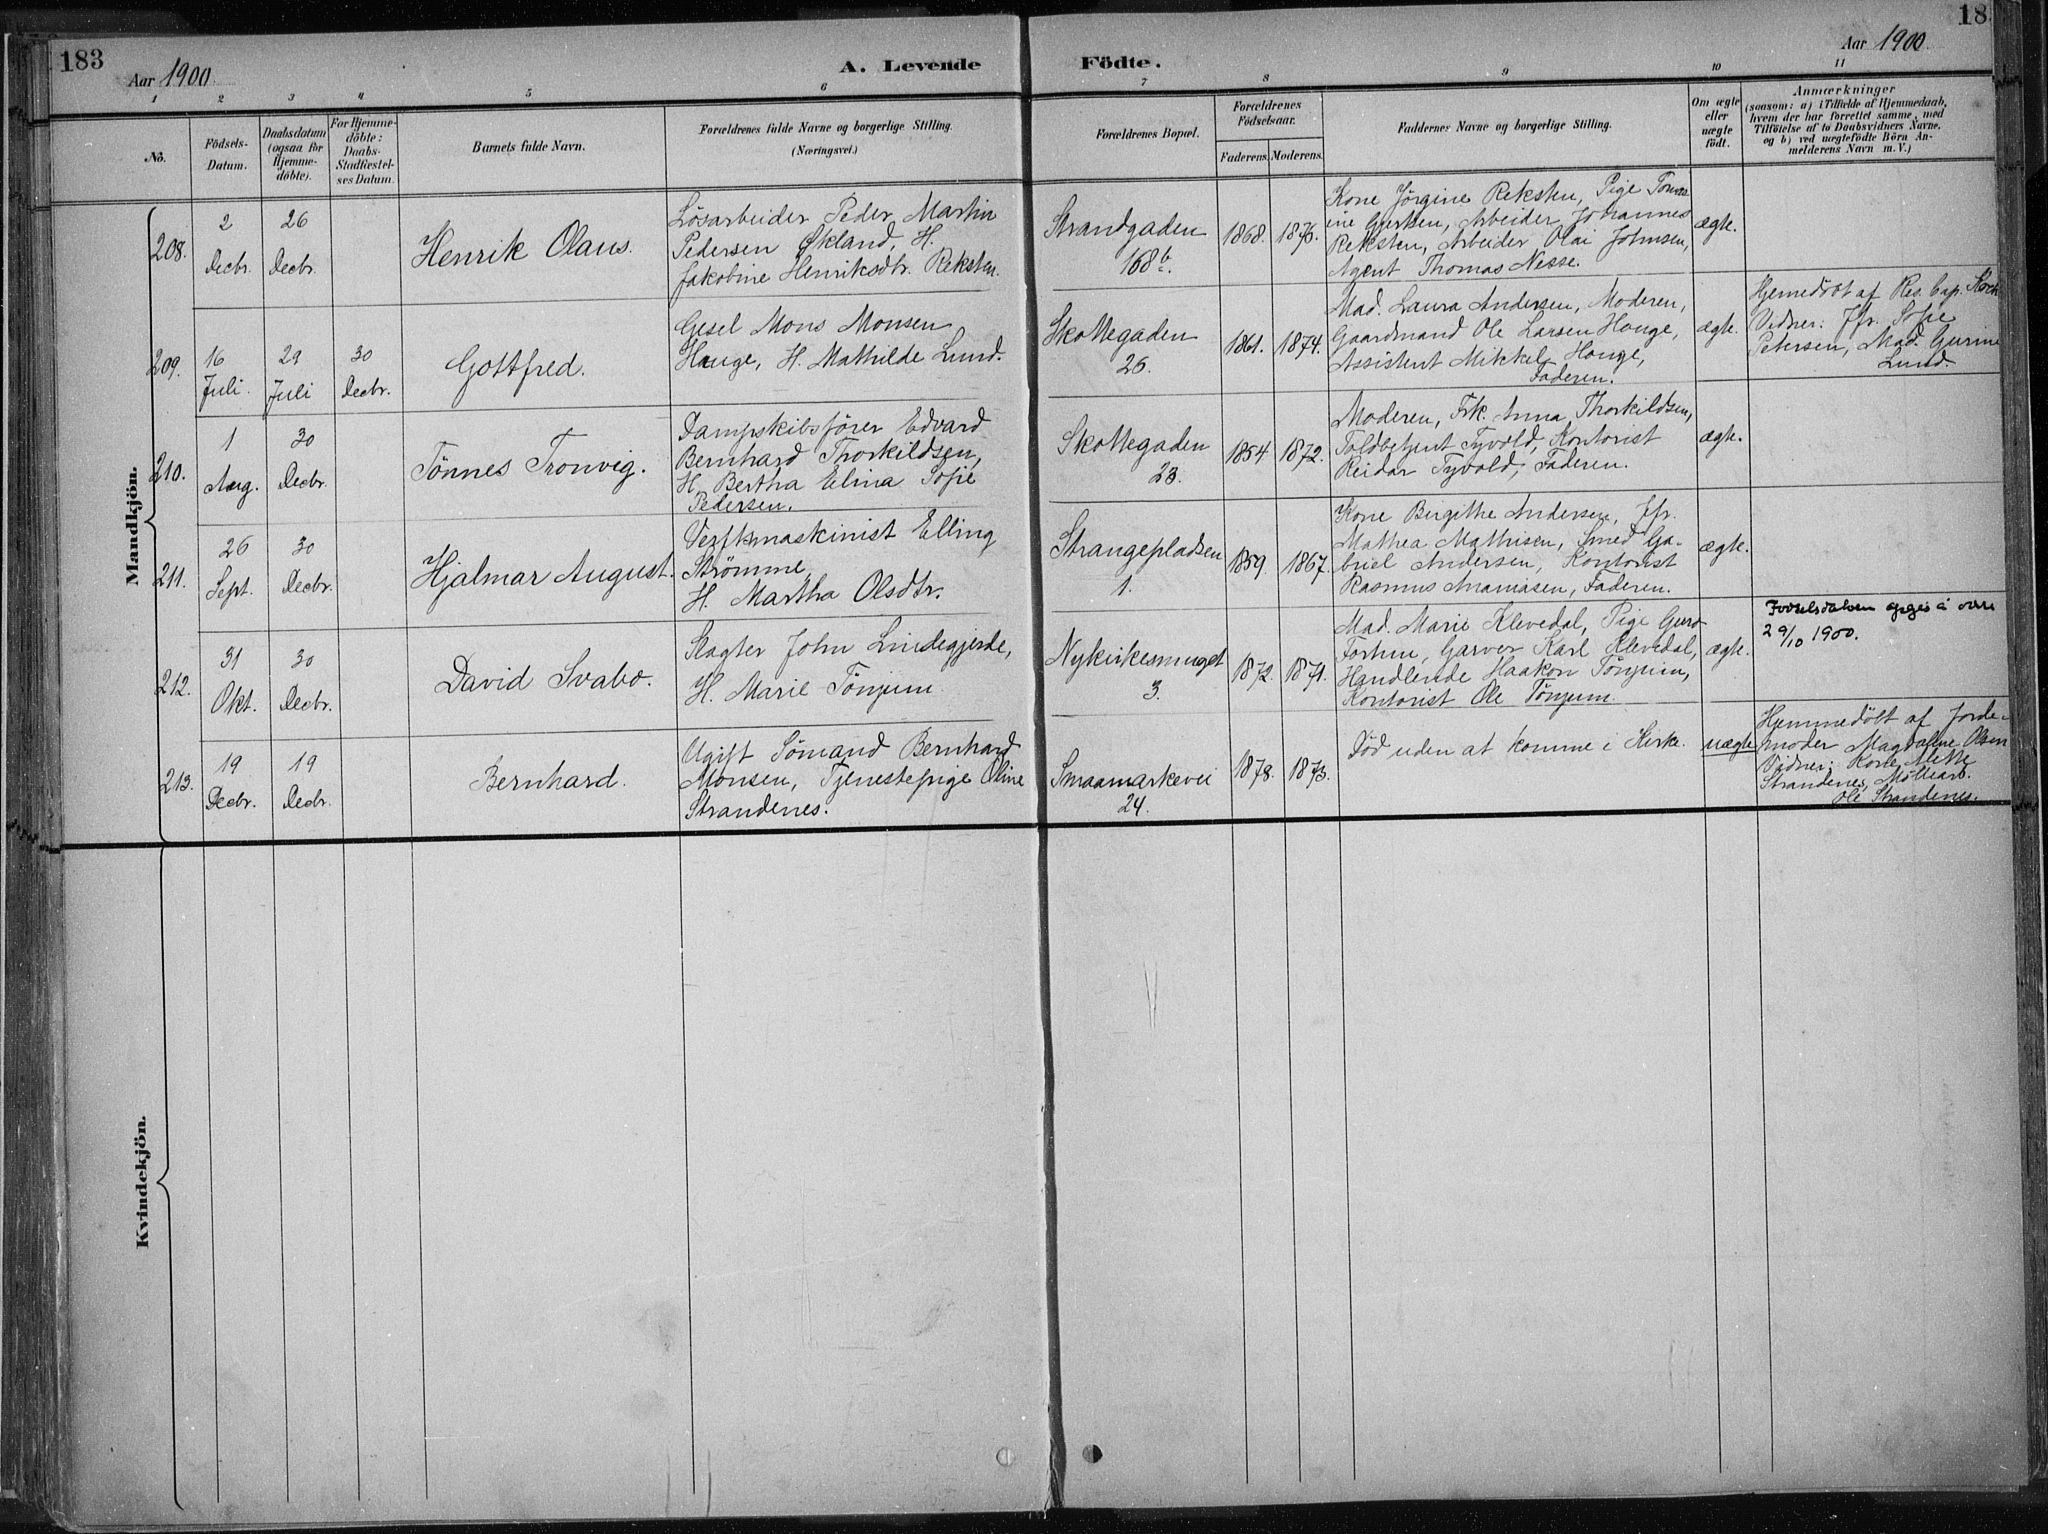 183
Aar 1900
A. Levende Födte.
Aar 1900
18
1 2 3 4 5 6 7 8 9 10 11
No.
Födsels-
Datum.
Daabsdatum
(ogsaa for
Hjemme-
döbte).
For Hjemme-
döbte:
Daabs-
Stadfæstel-
ses Datum.
Barnets fulde Navn.
Forældrenes fulde Navne og borgerlige Stilling.
(Næringsvei.)
Forældrenes Bopæl.
Forældrenes
Födselsaar.
Faderens. Moderens.
Faddernes Navne og borgerlige Stilling.
Om ægte
eller
uægte
födt.
Anmærkninger
(saasom: a) i Tilfælde af Hjemmedaab,
hvem der har forrettet samme, med
Tilföielse af to Daabsvidners Navne,
og b) ved uægtefödte Börn An-
melderens Navn m. V.)
Mandkjön.
208.
2
Decbr.
26
Decbr.
Henrik Olaus.
Lösarbeider Peder Martin
Pedersen Økland, H.
Jakobine Henriksdtr. Reksten.
Strandgaden
168b.
1868. 1876.
Kone Jørgine Reksten, Pige Tomas-
ine Gjertsen, Arbeider Johannes
Reksten, Arbeider Olai Johnsen,
Agent Thomas Nesse.
ægte.
209.
16
Juli.
29
Juli
30
Decbr.
Gottfred.
Gesel Mons Monsen
Hauge, H. Mathilde Lund.
Skottegaden
26.
1861. 1874.
Mad. Laura Andersen, Moderen,
Gaardmand Ole Larsen Houge,
Assistent Mikkel Houge,
Faderen.
ægte.
Hjemedöbt af Res. Cap. Koch
Vidner: Jfr. Sofie
Petersen, Mad. Gurine
Lund.
210.
1
Aug.
30
Decbr.
Tönnes Tronvig.
Dampskibsförer Edvard
Bernhard Thorkildsen,
H. Bertha Elina Sofie
Pedersen.
Skottegaden
23.
1854 1872.
Moderen, Frk. Anna Thorkildsen,
Toldbetjent Tyvold, Kontorist
Reidar Tyvold, Faderen.
ægte.
211.
26
Sept.
30
Decbr.
Hjalmar August.
Verftsmaskinist Elling
Strømme,
H. Martha Olsdtr.
Strangepladsen
1.
1859. 1867.
Kone Birgithe Andersen, Jfr.
Mathea Mathisen, Smed Ga-
briel Andersen, Kontorist
Rasmus Ananiasen, Faderen.
ægte.
212.
31
Okt.
30
Decbr.
David Svabo.
Slagter John Lindegjerde,
H. Marie Tönjum.
Nykirkesmuget
3.
1872. 1871.
Mad. Marie Klevedal, Pige Guro
Fortun, Garver Karl Klevedal,
Handlende Haakon Tönjum,
Kontorist Ole Tönjum.
ægte.
Fodselsdatoen opgis å være
29/10 1900.
213.
19
Decbr.
19
Decbr.
Bernhard.
Ugift Sömand Bernhard
Monsen, Tjenestepige Oline
Strandenes.
Smaamarkevei
24.
1878. 1873.
Död uden at komme i Kirke.
uægte
Hjemmedöbt af Jorde-
moder Magdalene Olsen
Vidner: Kone Mette
Strandenes, Möllearb.
Ole Strandenes.
Kvindekjön.